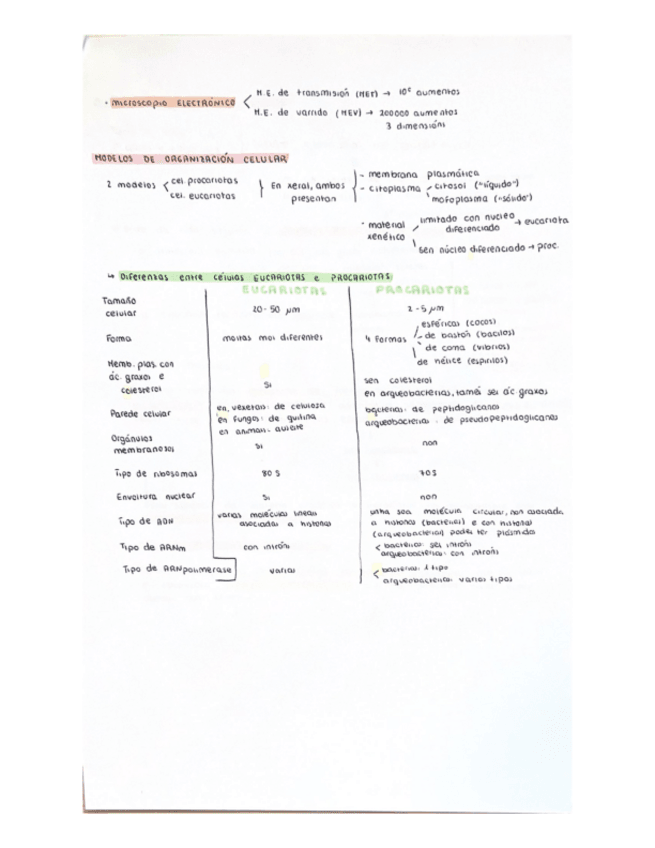 · MICROSCOPIO ELECTRÓNICO
M.E. de transmisión (MET) → 10⁶ aumentos
M.E. de varrido (MEV) → 200000 aumentos
3 dimensións
MODELOS DE ORGANIZACIÓN CELULAR
2 modelos
cel. procariotas
cel. eucariotas
En xeral, ambos
presentan
- membrana plasmática
- citoplasma
citosol ("líquido")
("sólido")
· material
xenético
limitado con nucleo
diferenciado → eucariota
sen núcleo diferenciado → proc.
↳ Diferenzas entre células EUCARIOTAS e PROCARIOTAS
EUCARIOTAS PROCARIOTAS
Tamaño
celular
20-50 µm
2-5 µm
Forma
moitas moi diferentes
4 formas
esféricas (cocos)
de bastón (bacilos)
de coma (vibrios)
de hélice (espirilos)
Memb. plas. con
ác. graxos e
colesterol
si
sen colesterol
en arqueobacterias, tamén sen ác. graxos
Parede celular
en vexetais: de celulosa
en fungos: de quitina
en animais: ausente
bacterias: de peptidoglicanos
arqueobacterias: de pseudopeptidoglicanos
Orgánulos
membranosos
si
non
Tipo de ribosomas
80 S
70 S
Envoltura nuclear
si
non
Tipo de ADN
varias moléculas lineais
asociadas a histonas
unha soa molécula circular, non asociada
a histonas (bacterias) e con histonas
(arqueobacterias) poden ter plásmidos
Tipo de ARNm
con intróns
bacterias: sen intróns
arqueobacterias: con intróns
Tipo de ARNpolimerase
varias
bacterias: 1 tipo
arqueobacterias: varios tipos